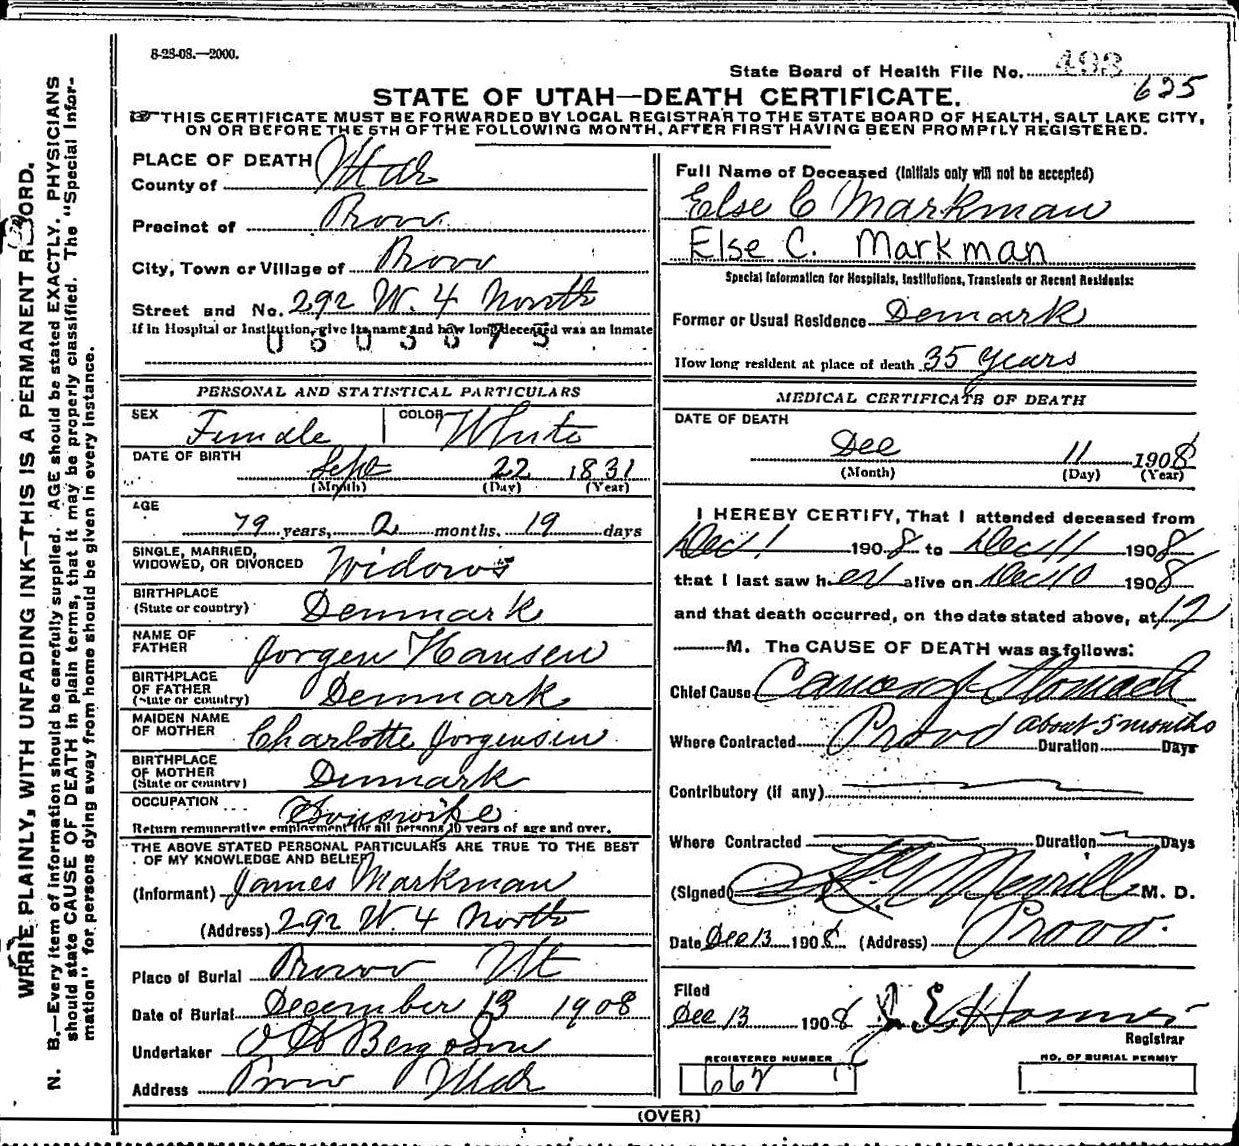 8-28-08.—2000.
State Board of Health File No. 493
625
STATE OF UTAH—DEATH CERTIFICATE.
THIS CERTIFICATE MUST BE FORWARDED BY LOCAL REGISTRAR TO THE STATE BOARD OF HEALTH, SALT LAKE CITY,
ON OR BEFORE THE 5TH OF THE FOLLOWING MONTH, AFTER FIRST HAVING BEEN PROMPTLY REGISTERED.
PLACE OF DEATH
County of Utah
Precinct of Provo
City, Town or Village of Provo
Street and No. 292 W. 4 North
If in Hospital or Institution, give its name and how long deceased was an inmate
0603675
PERSONAL AND STATISTICAL PARTICULARS
SEX Female COLOR White
DATE OF BIRTH
Sept 22 1831
(Month) (Day) (Year)
AGE
79 years, 2 months. 19 days
SINGLE, MARRIED,
WIDOWED, OR DIVORCED Widow
BIRTHPLACE
(State or country) Denmark
NAME OF
FATHER Jorgen Hansen
BIRTHPLACE
OF FATHER
(State or country) Denmark
MAIDEN NAME
OF MOTHER Charlotte Jorgensen
BIRTHPLACE
OF MOTHER
(State or country) Denmark
OCCUPATION Housewife
Return remunerative employment for all persons 10 years of age and over.
THE ABOVE STATED PERSONAL PARTICULARS ARE TRUE TO THE BEST
OF MY KNOWLEDGE AND BELIEF
(Informant) James Markman
(Address) 292 W. 4 North
Place of Burial Provo Ut
Date of Burial December 13 1908
Undertaker O H Bergeson
Address Provo Utah
Full Name of Deceased (Initials only will not be accepted)
Else C Markman
Else C. Markman
Special Information for Hospitals, Institutions, Transients or Recent Residents:
Former or Usual Residence Demark
How long resident at place of death 35 years
MEDICAL CERTIFICATE OF DEATH
DATE OF DEATH
Dec 11 1908
(Month) (Day) (Year)
I HEREBY CERTIFY, That I attended deceased from
Dec 1 1908 to Dec 11 1908
that I last saw her alive on Dec 10 1908
and that death occurred, on the date stated above, at 12
M. The CAUSE OF DEATH was as follows:
Chief Cause Cancer of Stomach
about 5 months
Where Contracted Provo Duration Days
Contributory (if any)
Where Contracted Duration Days
(Signed) Merrill M. D.
Date Dec 13 1908 (Address) Provo.
Filed
Dec 13 1908 J. E. Homer
Registrar
REGISTERED NUMBER NO. OF BURIAL PERMIT
662
(OVER)
WRITE PLAINLY, WITH UNFADING INK—THIS IS A PERMANENT RECORD.
N. B.—Every item of information should be carefully supplied. AGE should be stated EXACTLY. PHYSICIANS
should state CAUSE OF DEATH in plain terms, that it may be properly classified. The "Special Infor-
mation" for persons dying away from home should be given in every instance.